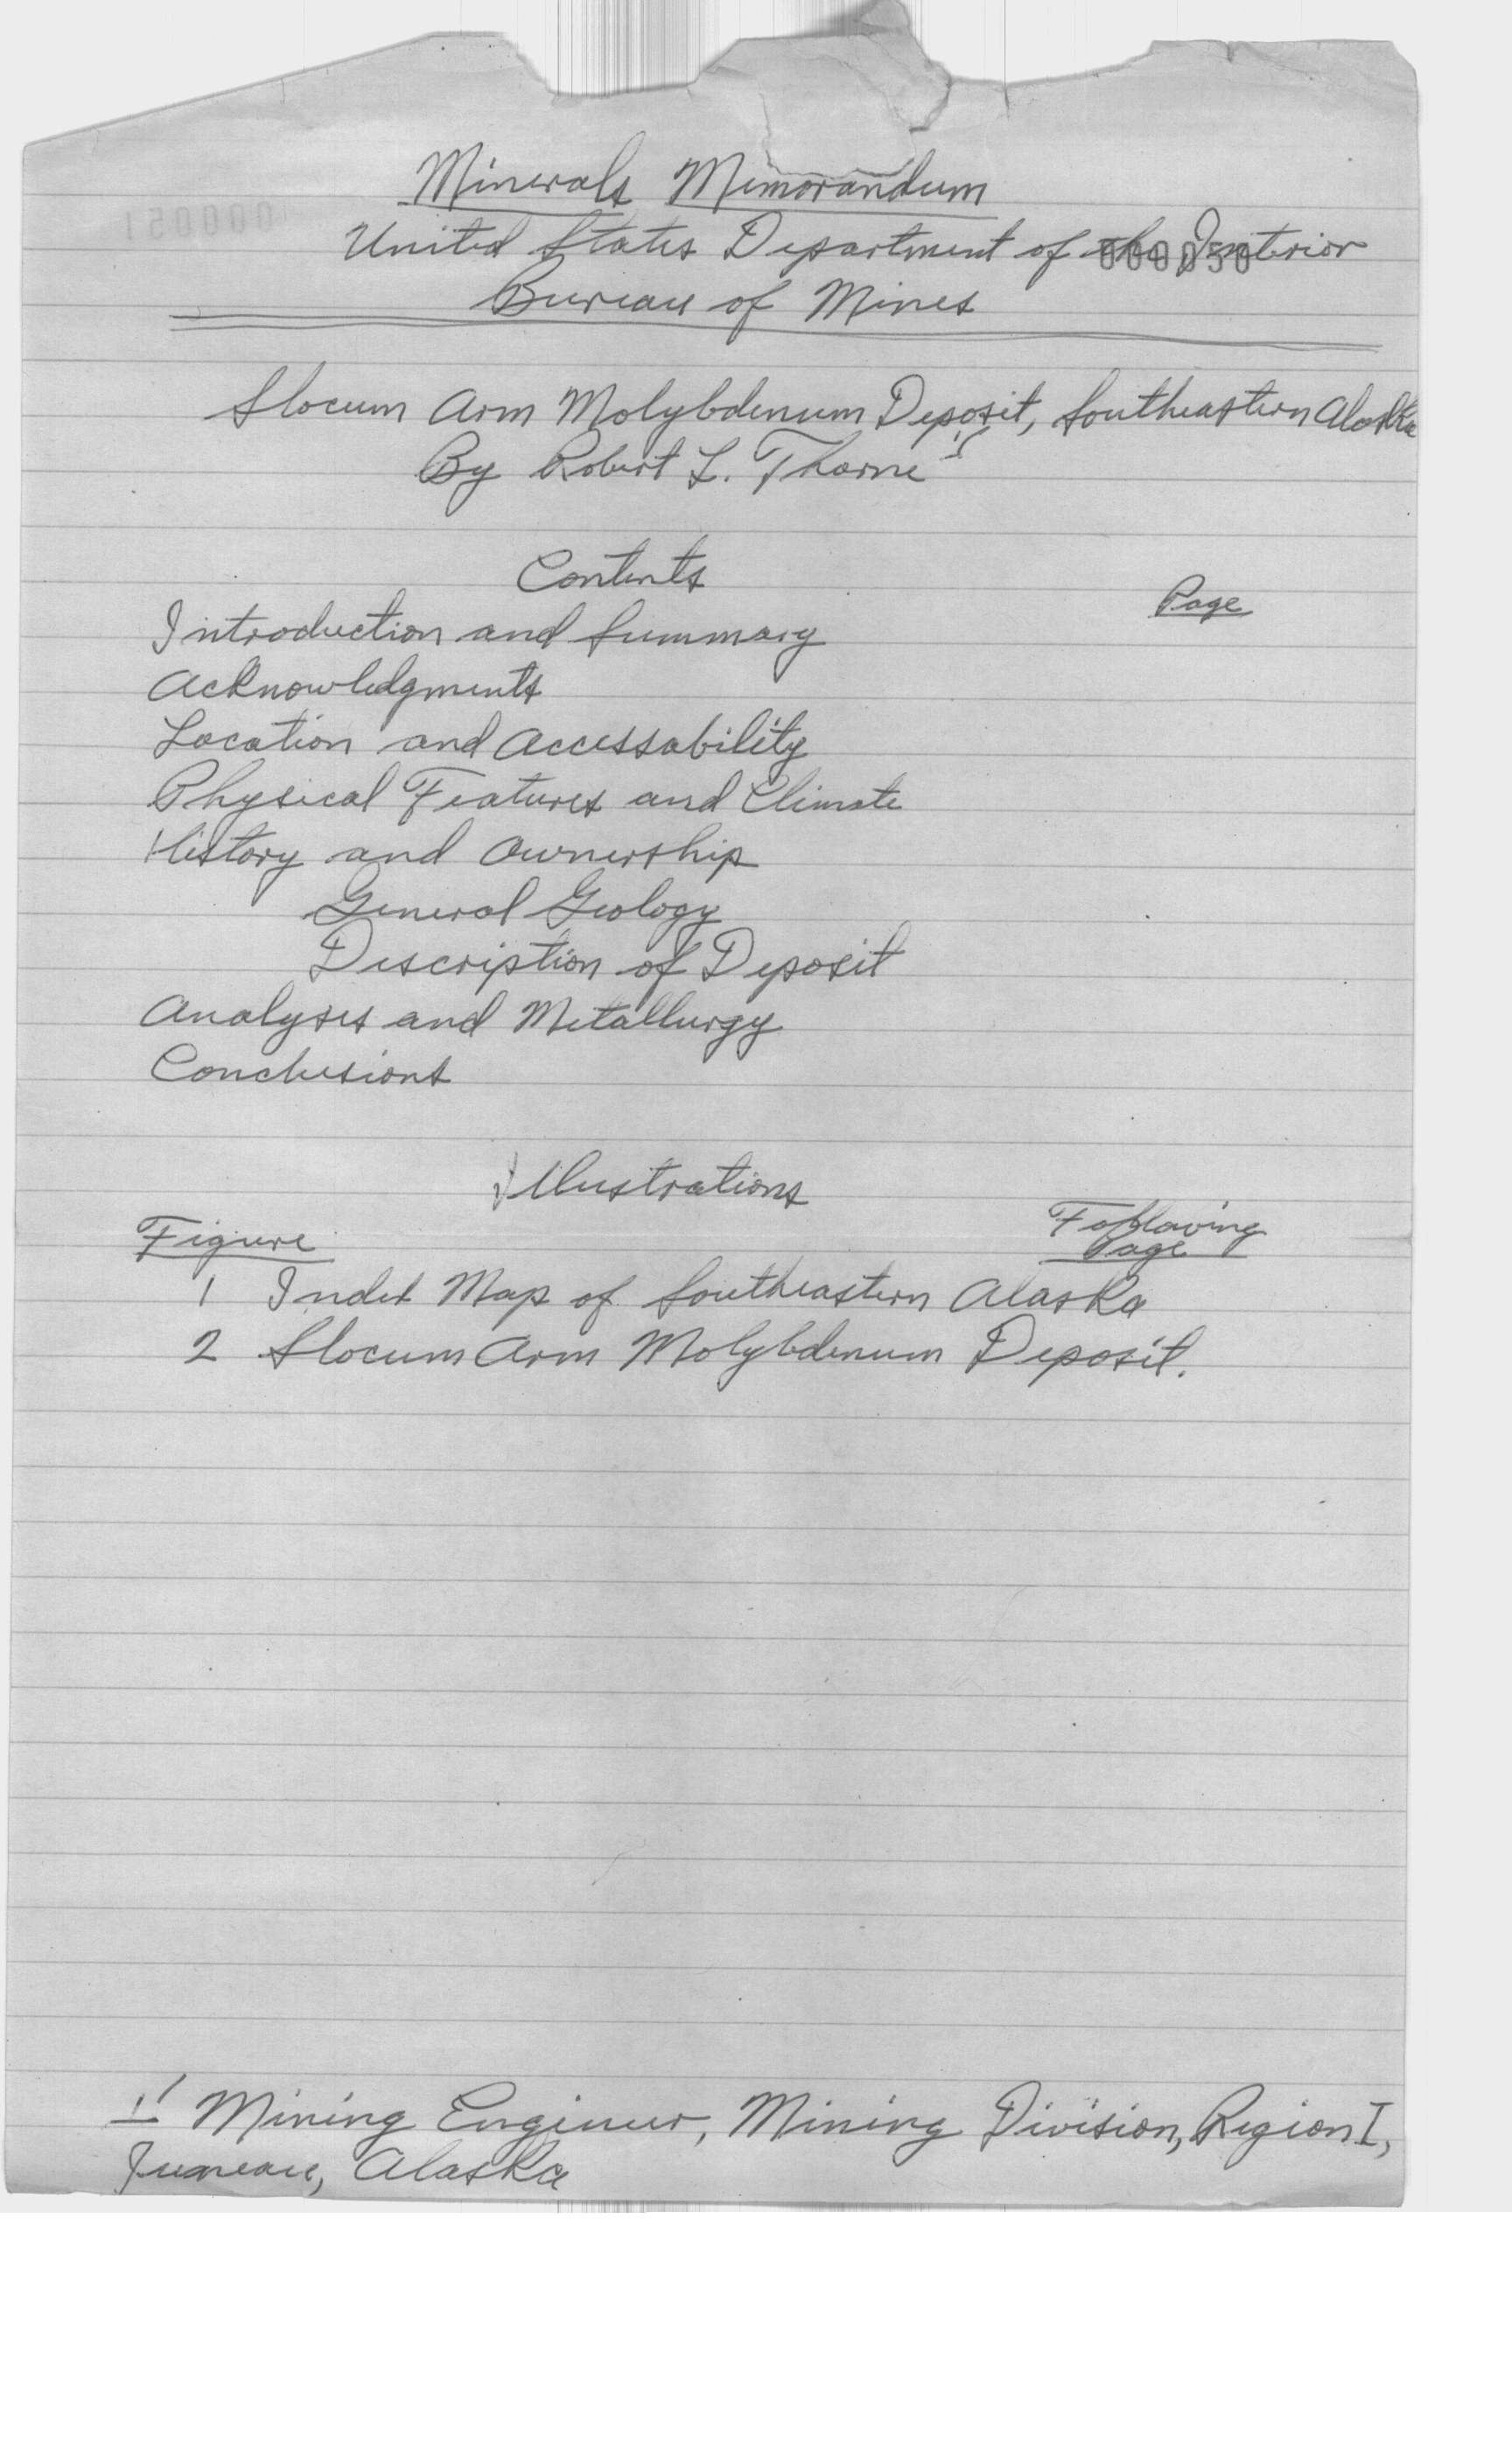 Minerals Memorandum
United States Department of the Interior
000050
Bureau of Mines
Slocum Arm Molybdenum Deposit, Southeastern Alaska
By Robert L. Thorne 1/
Contents
Page
Introduction and Summary
Acknowledgments
Location and Accessability
Physical Features and Climate
History and Ownership
General Geology
Description of Deposit
Analyses and Metallurgy
Conclusions
Illustrations
Figure
Following
Page
1 Index Map of Southeastern Alaska
2 Slocum Arm Molybdenum Deposit.
1/ Mining Engineer, Mining Division, Region I,
Juneau, Alaska